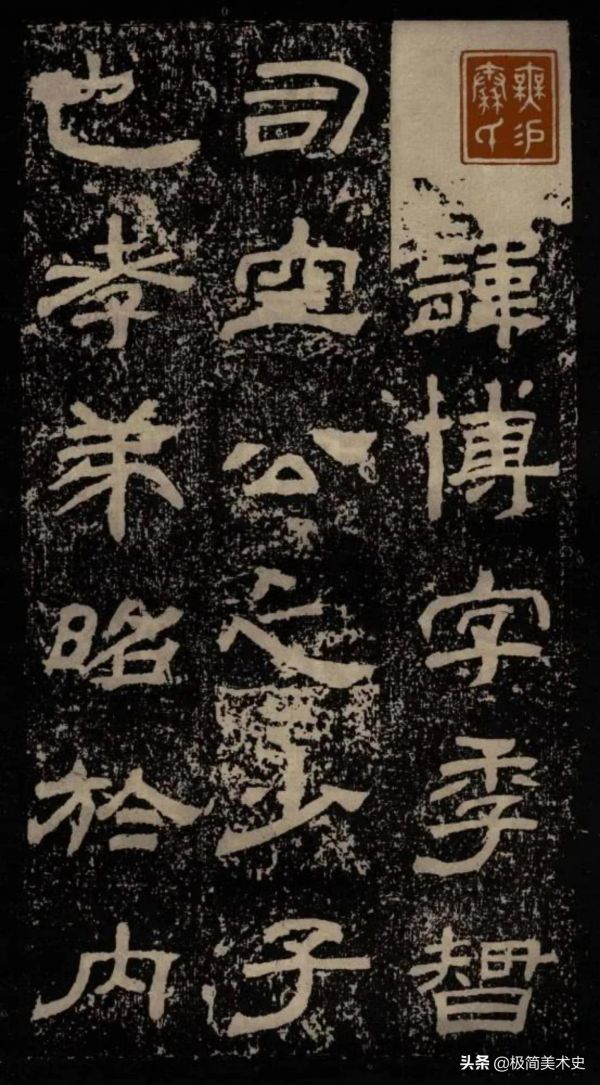 諱博字季智
司空公之少子
也孝弟昭於内
头条 @极简美术史